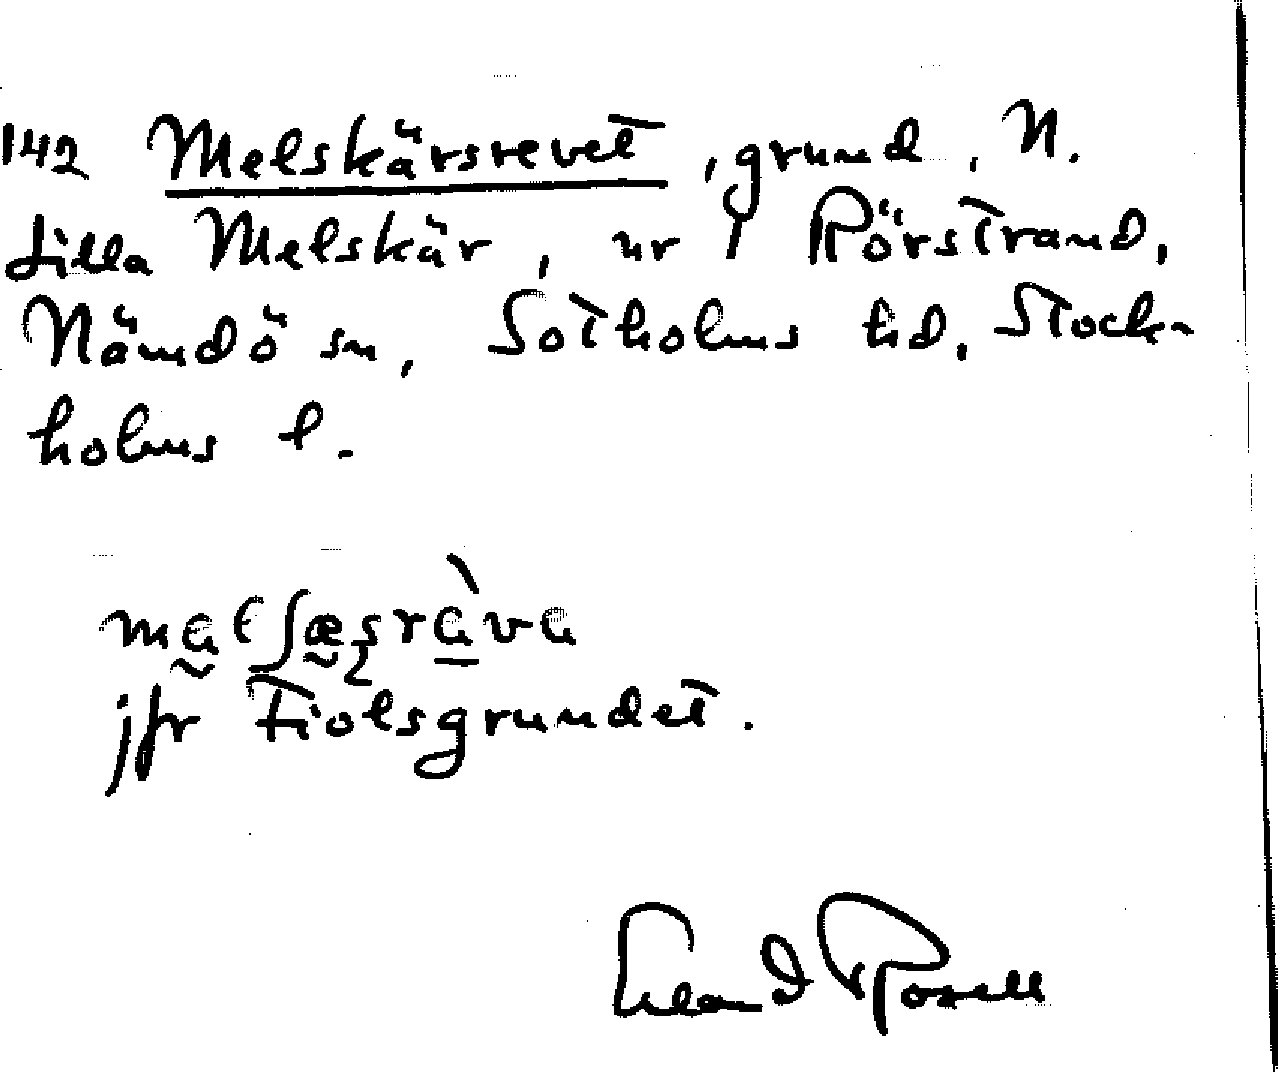 142 Melskärsrevet, grund, N.
Lilla Melskär, nr 1 Rörstrand,
Nämdö sn, Sotholms hd, Stock-
holms l.
jfr Fiolsgrundet.
Erland Rosell